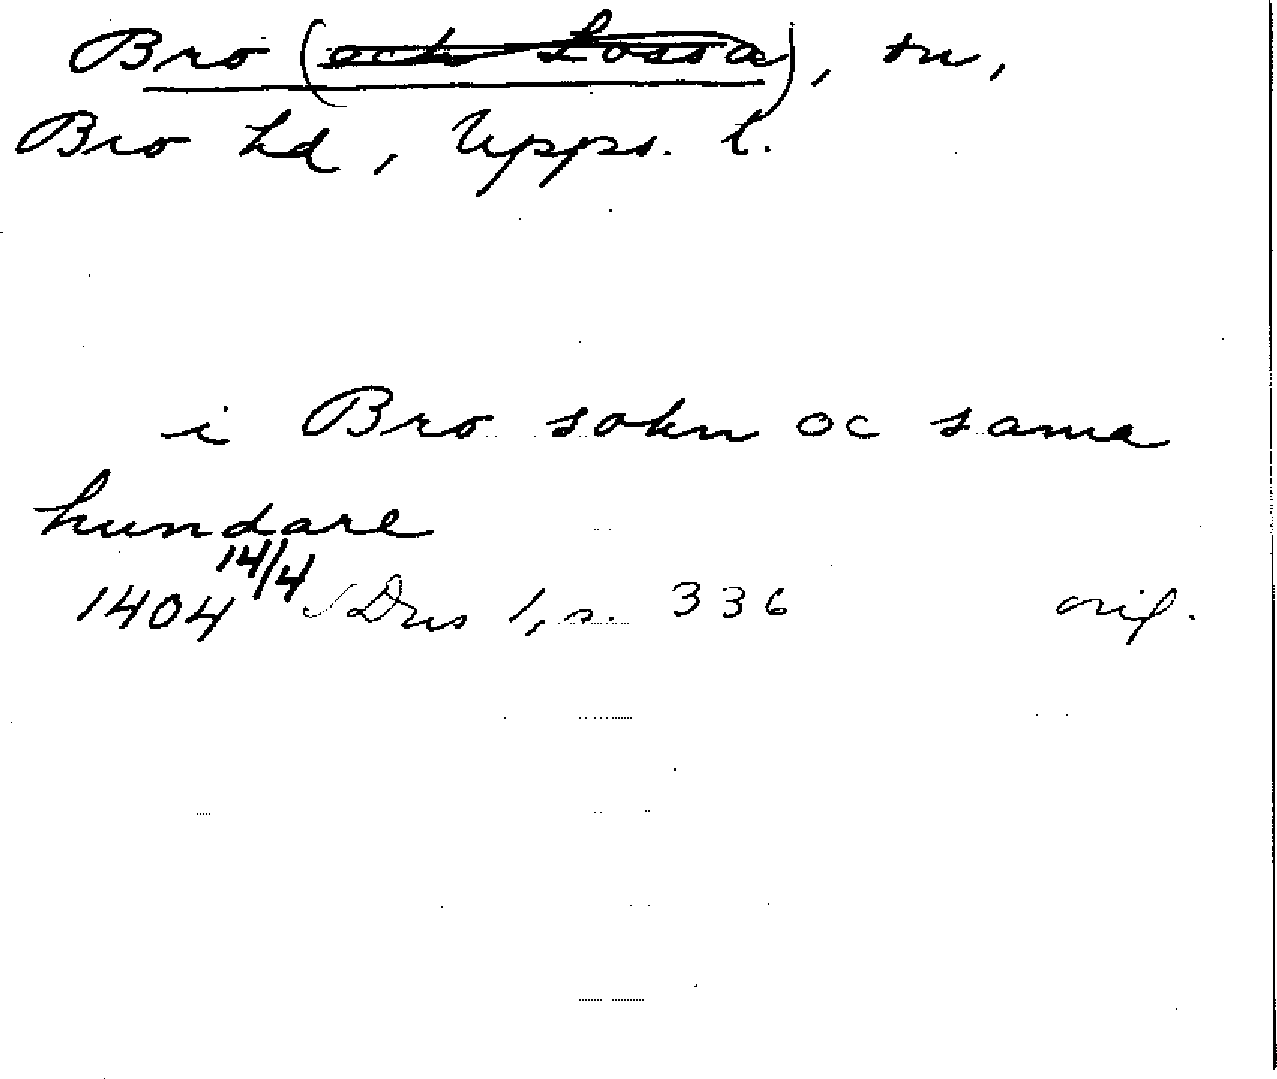 Bro (och Lossa), sn,
Bro hd, Upps. l.
i Bro sokn oc sama
hundare
1404 14/4 SDns 1, s. 336 orig.